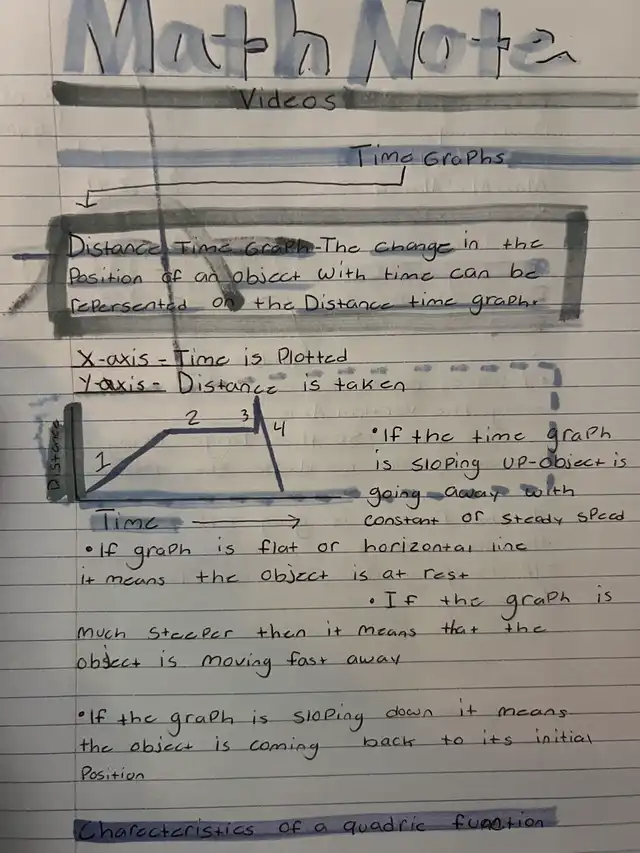 Math Note
Videos
Time Graphs
Distance Time Graph-The change in the
Position of an object with time can be
repersented on the Distance time graph.
X-axis - Time is Plotted
Y-axis - Distance is taken
Distance
1
2
3
4
• If the time graph
is sloping up-object is
going away with
constant or steady speed
Time
• If graph is flat or horizontal line
it means the object is at rest
• If the graph is
much steeper then it means that the
object is moving fast away
• If the graph is sloping down it means
the object is coming back to its initial
Position
Charecteristics of a quadric function